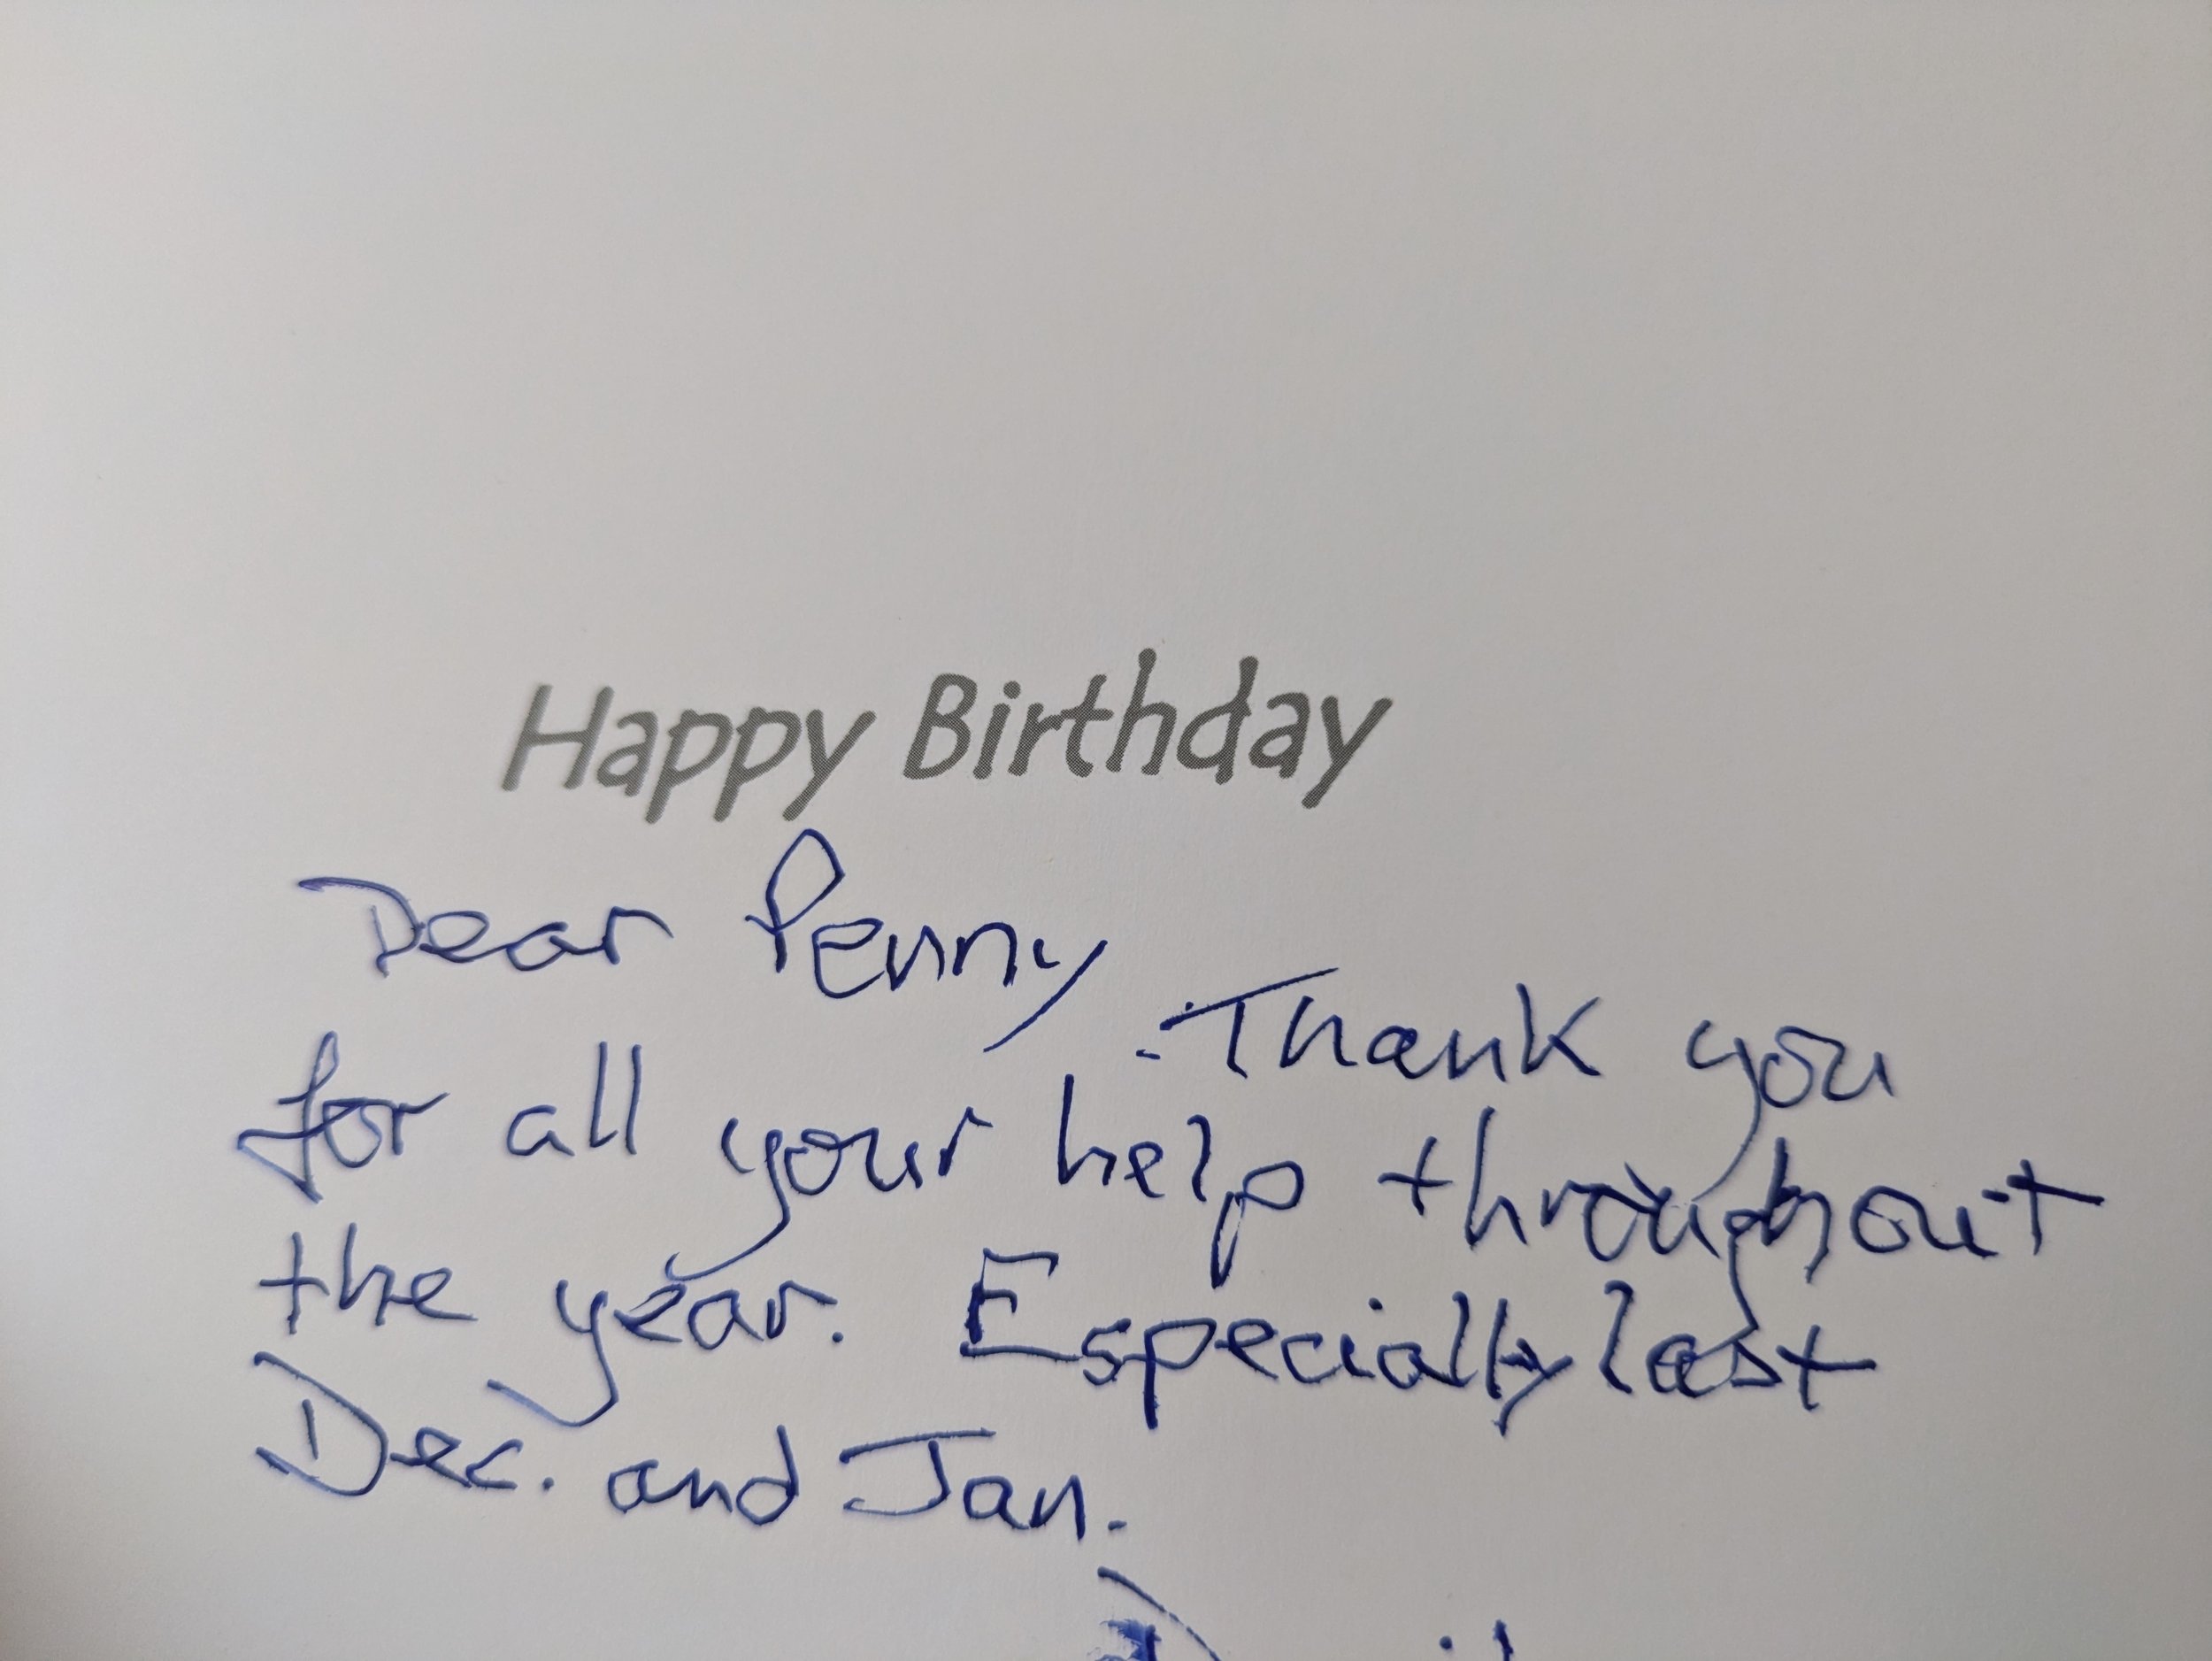 Happy Birthday
Dear Penny. Thank you
for all your help throughout
the year. Especially last
Dec. and Jan.